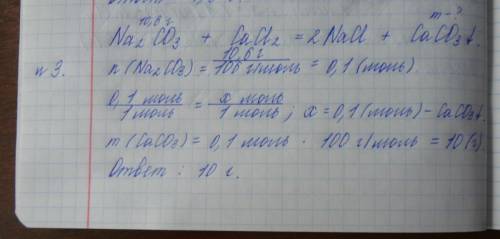 10,6 г m - ?
Na₂CO₃ + CaCl₂ = 2NaCl + CaCO₃↓.
№3. n(Na₂CO₃) = 10,6 г / 106 г/моль = 0,1 (моль)
0,1 моль / 1 моль = x моль / 1 моль ; x = 0,1 (моль) - CaCO₃↓.
m(CaCO₃) = 0,1 моль · 100 г/моль = 10 (г).
Ответ : 10 г.